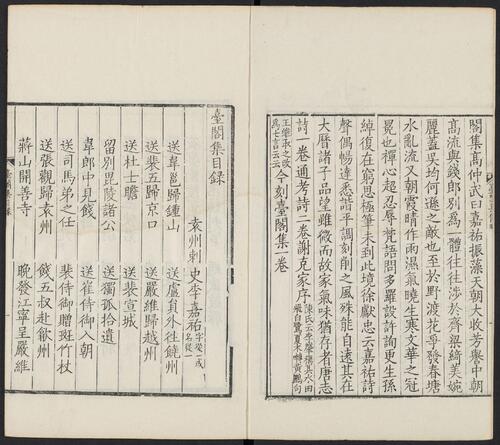 閣集高仲武曰嘉祐振藻天朝大收芳譽中朝
高流與錢郎別爲一體往往涉於齊梁綺美婉
麗蓋吳均何遜之敵也至於野渡花爭發春塘
水亂流又朝霞晴作雨濕氣曉生寒文華之冠
冕也禪心超忍辱梵語問多羅設許詢更生孫
綽復在窮思極筆未到此境徐獻忠云嘉祐詩
聲偶暢達悉諧平調刻削之風殊能自遠其在
大曆諸子品望雖微而故家氣味猶存者唐志
詩一卷通考詩二卷謝克家序陳氏云李肇稱其水田
飛白鷺夏木囀黃鸝向
王維承之改
爲七言云云今刻臺閣集一卷
臺閣集目録
袁州刺史李嘉祐字從一或
名從一
送韋邕歸鍾山
送盧員外往饒州
送裴五歸京口
送嚴維歸越州
送杜士瞻
送裴宣城
留別毘陵諸公
送獨孤拾遺
韋郎中見餞
送崔侍御入朝
送司馬弟之任
裴侍御贈斑竹杖
送張觀歸袁州
餞五叔赴歙州
蔣山開善寺
晚發江寧呈嚴維